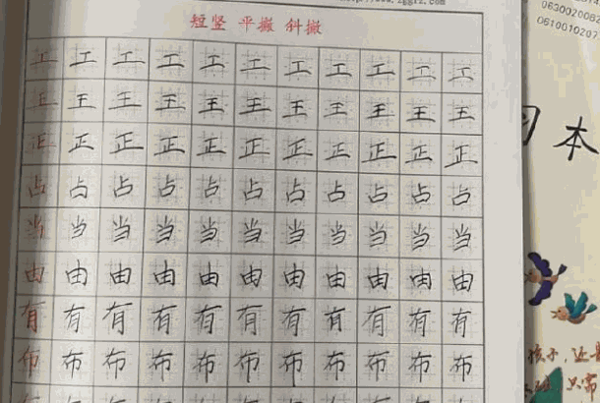 短竖 平撇 斜撇
工工工工工工工工工工工
王王王王王王王王王王王
正正正正正正正正正正正
占占占占占占占占占占占
当当当当当当当当当当当
由由由由由由由由由由由
有有有有有有有有有有有
布布布布布布布布布布布
本
孩子,还